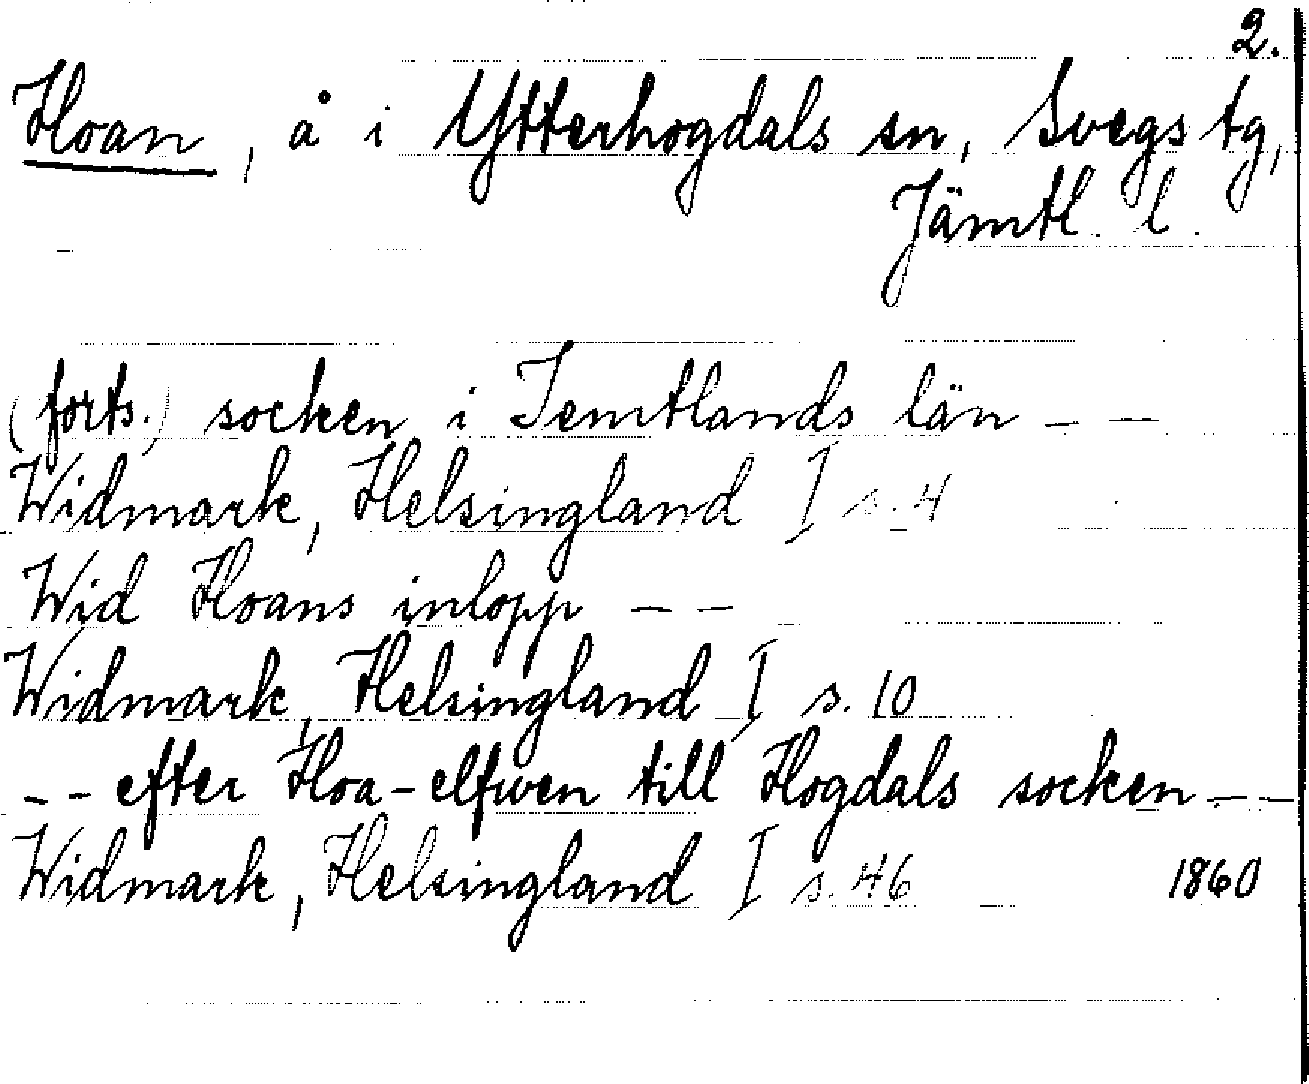 2.
Hoan, å i Ytterhogdals sn, Svegs tg,
Jämtl. l.
(forts.) socken i Jemtlands län - -
Widmark, Helsingland I s. 4
Wid Hoans inlopp - -
Widmark, Helsingland I s. 10
- - efter Hoa-elfwen till Hogdals socken - -
Widmark, Helsingland I s. 46 1860